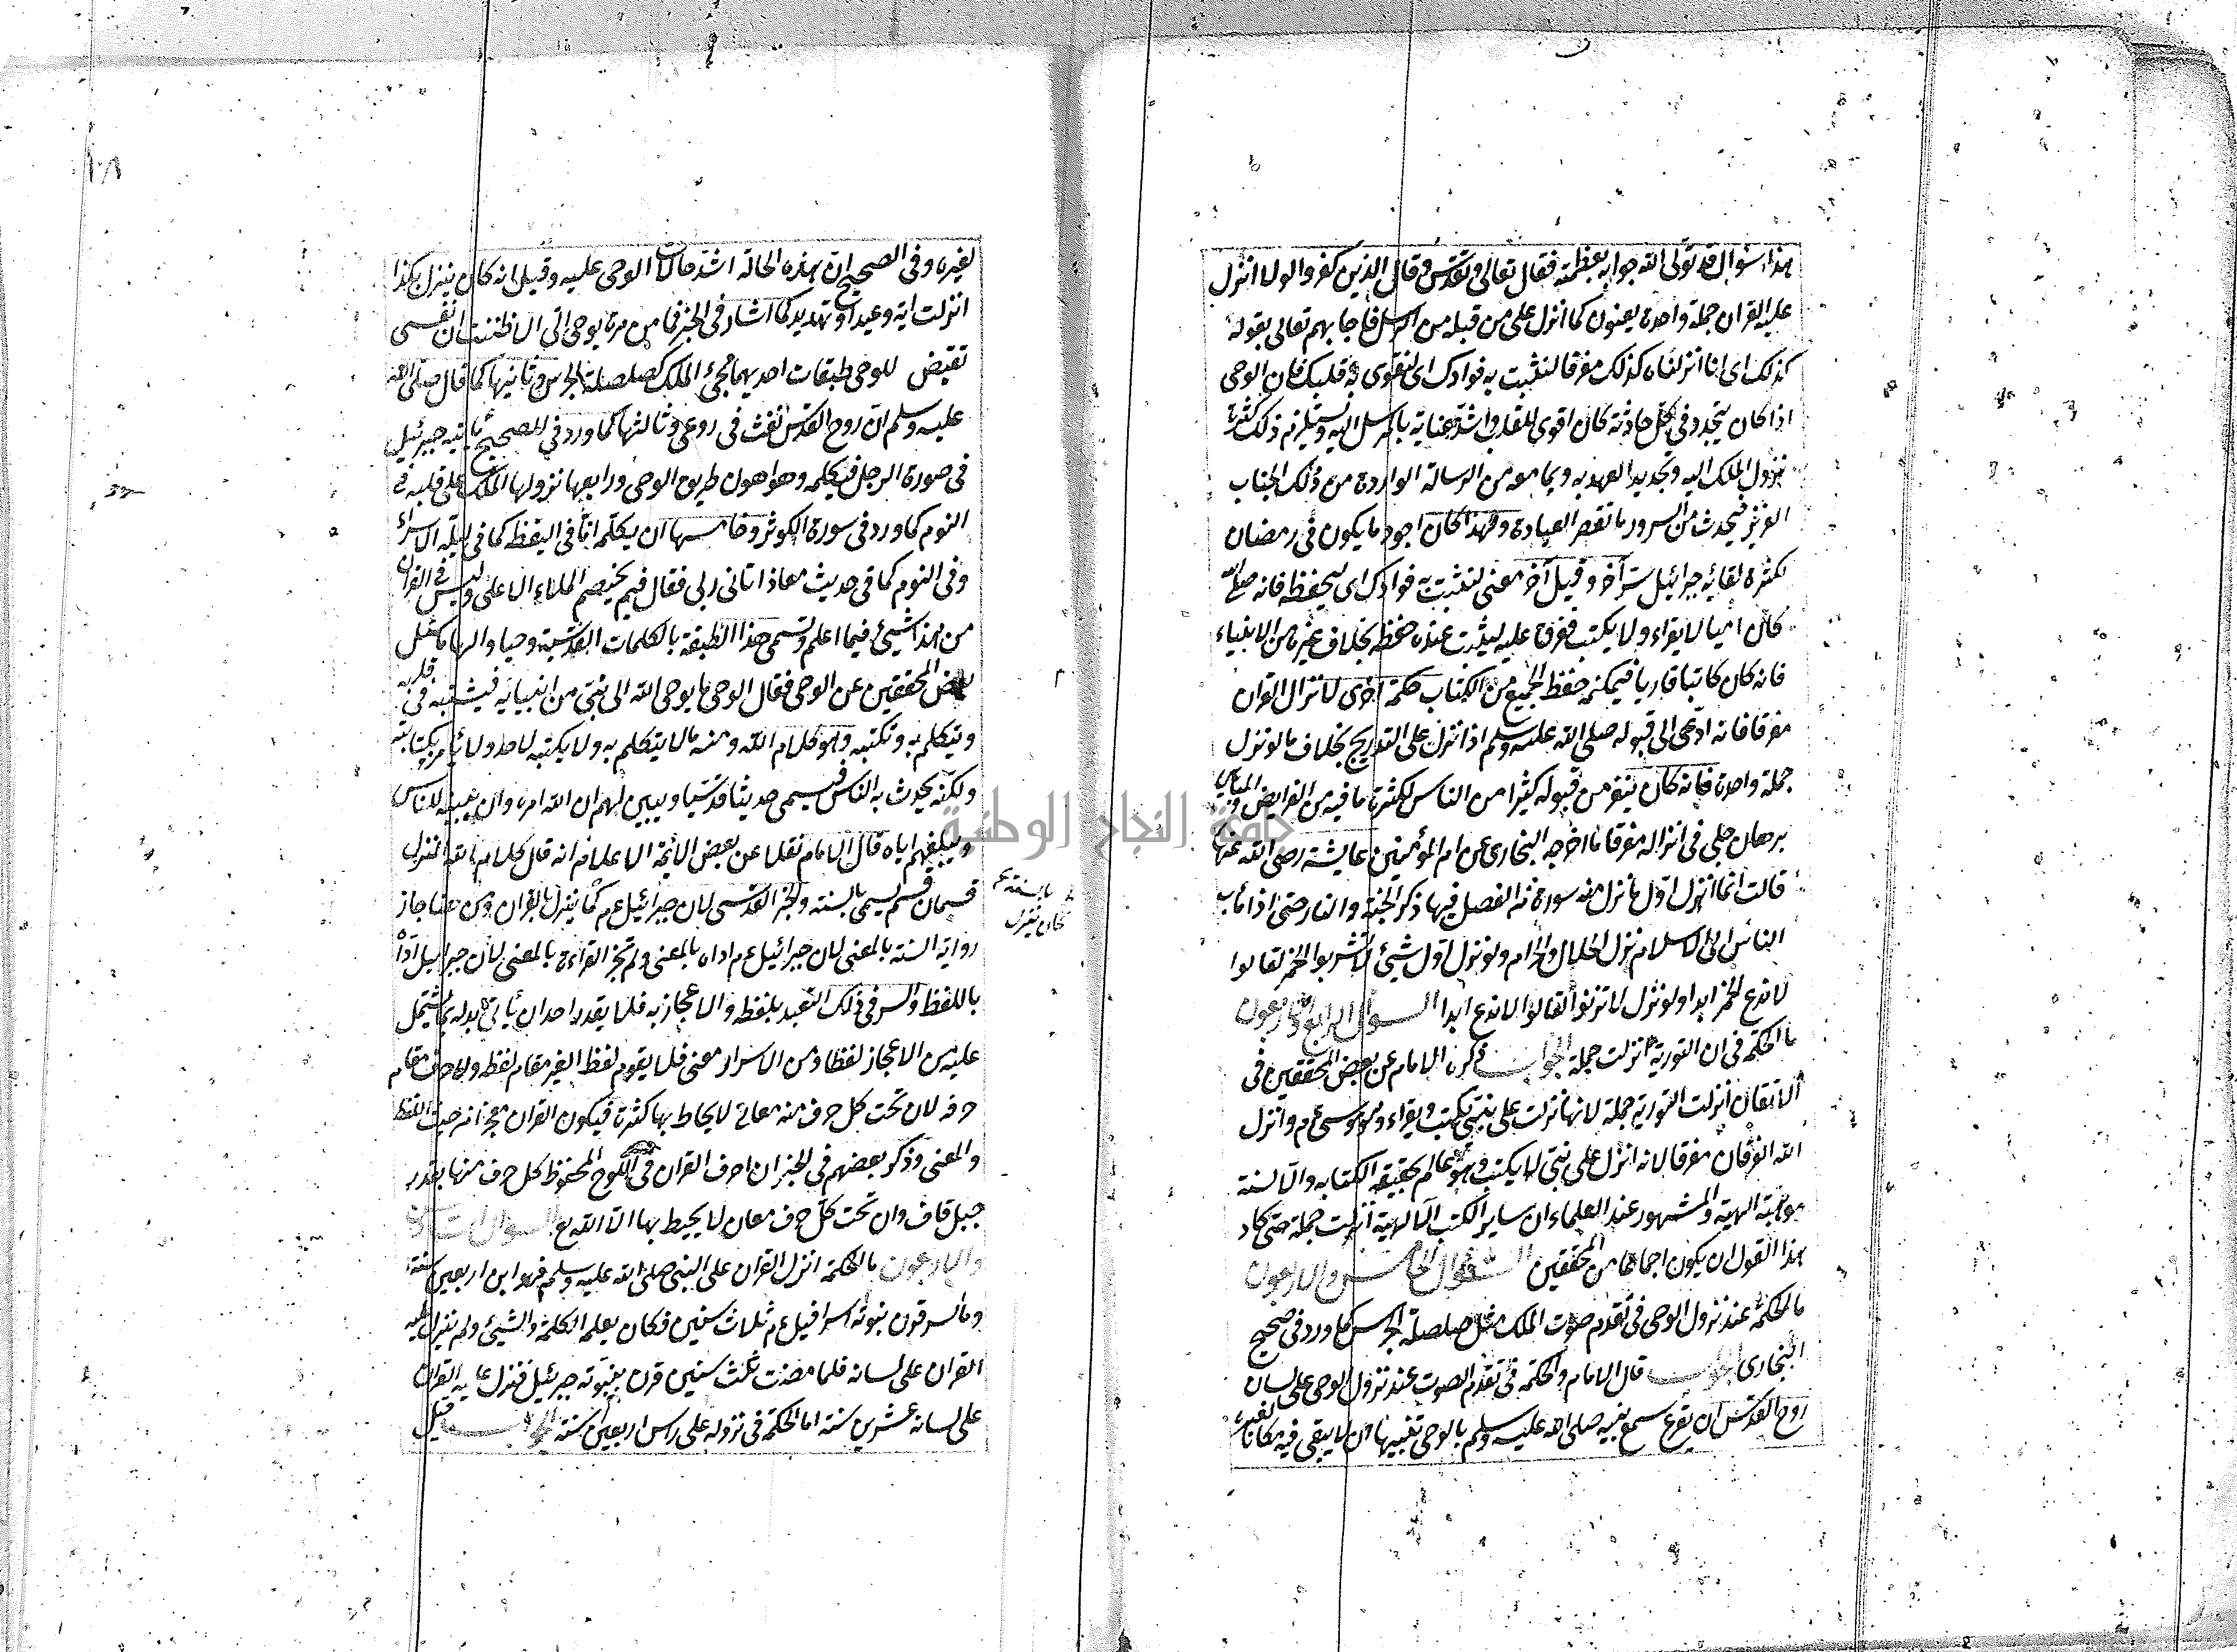 هذا سؤال قد تولى الله جوابه بعظمته فقال تعالى وتقدس وقال الذين كفروا لولا انزل
عليه القران جملة واحدة يعنون كما انزل على من قبله من الرسل فاجابهم تعالى بقوله
كذلك اى انا انزلناه كذلك مفرقا لنثبت به فوادك اى لنقوى به قلبك فان الوحى
اذا كان يتجدد فى كل حادثة كان اقوى للقلب واشد عناية بالمرسل اليه ويستلزم ذلك كثرة
نزول الملك اليه وتجديد العهد به وبما معه من الرسالة الواردة من ذلك الجناب
العزيز فيحدث من السرور ما تقصر العبادة ولهذا كان اجود ما يكون فى رمضان
لكثرة لقائه جبرائيل سر آخر وقيل آخر معنى لنثبت به فوادك اى ليحفظه فانه صلعم
كان اميا لا يقراء ولا يكتب ففرق عليه ليثبت عنده حفظه بخلاف غيره من الانبياء
فانه كان كاتبا قاريا فيمكنه حفظ الجميع من الكتاب حكمة اخرى لانزال القران
مفرقا فانه ادعى الى قبوله صلى الله عليه وسلم اذا نزل على التدريج بخلاف ما لو نزل
جملة واحدة فانه كان ينفر من قبوله كثيرا من الناس لكثرة ما فيه من الفرايض والمناهى
برهان جلى فى انزاله مفرقا ما اخرجه البخارى عن ام المؤمنين عايشة رضى الله عنها
قالت انما انزل اول ما نزل منه سورة من المفصل فيها ذكر الجنة والنار حتى اذا ثاب
الناس الى الاسلام نزل الحلال والحرام ولو نزل اول شيئ لا تشربوا الخمر لقالوا
لا ندع الخمر ابدا ولو نزل لا تزنوا لقالوا لا ندع ابدا السؤال الرابع والاربعون
ما الحكمة فى ان التورية انزلت جملة الجواب ذكره الامام عن بعض المحققين فى
الاتقان انزلت التورية جملة لانها نزلت على نبى يكتب ويقراء وهو موسى ءم وانزل
الله الفرقان مفرقا لانه انزل على نبى لا يكتب الكتابه والالسنة
موهبة الهية والمشهور عند العلماء ان ساير الكتب الالهية انزلت جملة حتى كاد
هذا القول ان يكون اجماعا من المحققين السؤال الخامس والاربعون
ما الحكمة عند نزول الوحى فى تقدم صوت الملك مثل صلصلة الجرس كما ورد فى صحيح
البخارى الجواب قال الامام والحكمة فى تقدم الصوت عند نزول الوحى على لسان
روح القدس ان يقرع سمع نبيه صلى الله عليه وسلم بالوحى تنبيها ان لا يبقى فيه مكانا
لغيره
١٠٨
لغيره وفى الصحيح ان هذه الحالة اشد حالات الوحى عليه وقيل انه كان ينزل هكذا
انزلت اية وعيد او تهديد كما اشار فى الخبر فما من مرة يوحى الى الا ظننت ان نفسى
تقبض للوحى طبقات احديها مجئ الملك كصلصلة الجرس وثانيها كما قال صلى الله
عليه وسلم ان روح القدس نفث فى روعى وثالثها كما ورد فى الصحيح ياتيه جبرئيل
فى صورة الرجل فيكلمه وهو اهون طريق الوحى ورابعها نزولها الملك على قلبه فى
النوم كما ورد فى سورة الكوثر وخامسها ان يكلمه اما فى اليقظة كما فى ليلة الاسراء
وفى النوم كما فى حديث معاذ اتانى ربى فقال فيم يختصم الملاء الاعلى وليس فى القران
من هذا شيئ فيما اعلم وتسمى هذا الطبقة بالكلمات القدسية وحيا والهاما سئل
بعض المحققين عن الوحى فقال الوحى ما يوحى الله الى نبى من انبيائه فيثبته فى قلبه
ويتكلم به وتكتبه وهو كلام الله ومنه ما لا يتكلم به ولا يكتبه لاحد ولا يأمر بكتابته
ولكنه يحدث به الناس فيسمى حديثا قدسيا ويبين لهم ان الله امره وان يبينه للناس
ويبلغهم اياه قال الامام نقلا عن بعض الائمة الاعلام انه قال كلام الله المنزل
قسمان قسم يسمى بالسنة والخبر القدسى لان جبرائيل ءم كما ينزل بالقران ومن هنا جاز
بالسنة
كان ينزل
رواية السنة بالمعنى لان جبرائيل ءم اداه بالمعنى ولم تجز القراءة بالمعنى لان جبرائيل اداه
باللفظ والسر فى ذلك التعبد بلفظه والاعجاز به فلا يقدر احد ان ياتى بدله بما يشتمل
عليه من الاعجاز لفظا ومن الاسرار معنى فلا يقوم لفظ الغير مقام لفظه ولا حرف مقام
حرفه لان تحت كل حرف منه معانى لا يحاط بها كثرة فيكون القران معجزا من حيث اللفظ
والمعنى وذكر بعضهم فى الخبر ان احرف القران فى اللوح المحفوظ كل حرف منها بقدر
جبل قاف وان تحت كل حرف معان لا يحيط بها الا الله ع السؤال السادس
والاربعون ما الحكمة انزل القران على النبى صلى الله عليه وسلم وهو ابن اربعين سنة
قرن بنبوته اسرافيل ءم ثلاث سنين فكان يعلمه الكلمة والشيئ ولم ينزل عليه
القران على لسانه فلما مضت ثلث سنين قرن بنبوته جبرئيل فنزل عليه القران
على لسانه عشرين سنة اما الحكمة فى نزوله على راس اربعين سنة الجواب قيل
جامعة النجاح الوطنية